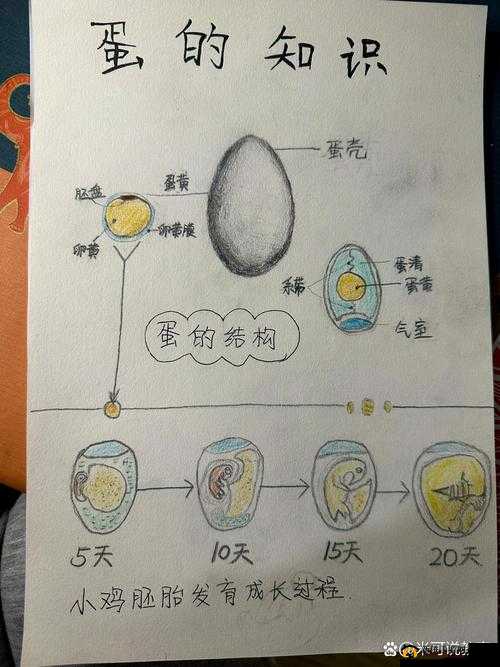 蛋的知识
蛋壳
胚盘
蛋黄
卵黄
卵黄膜
系带
蛋清
蛋黄
气室
蛋的结构
5天
10天
15天
20天
小鸡胚胎发育成长过程.
米可说